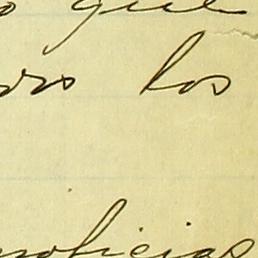 que
los
noticias